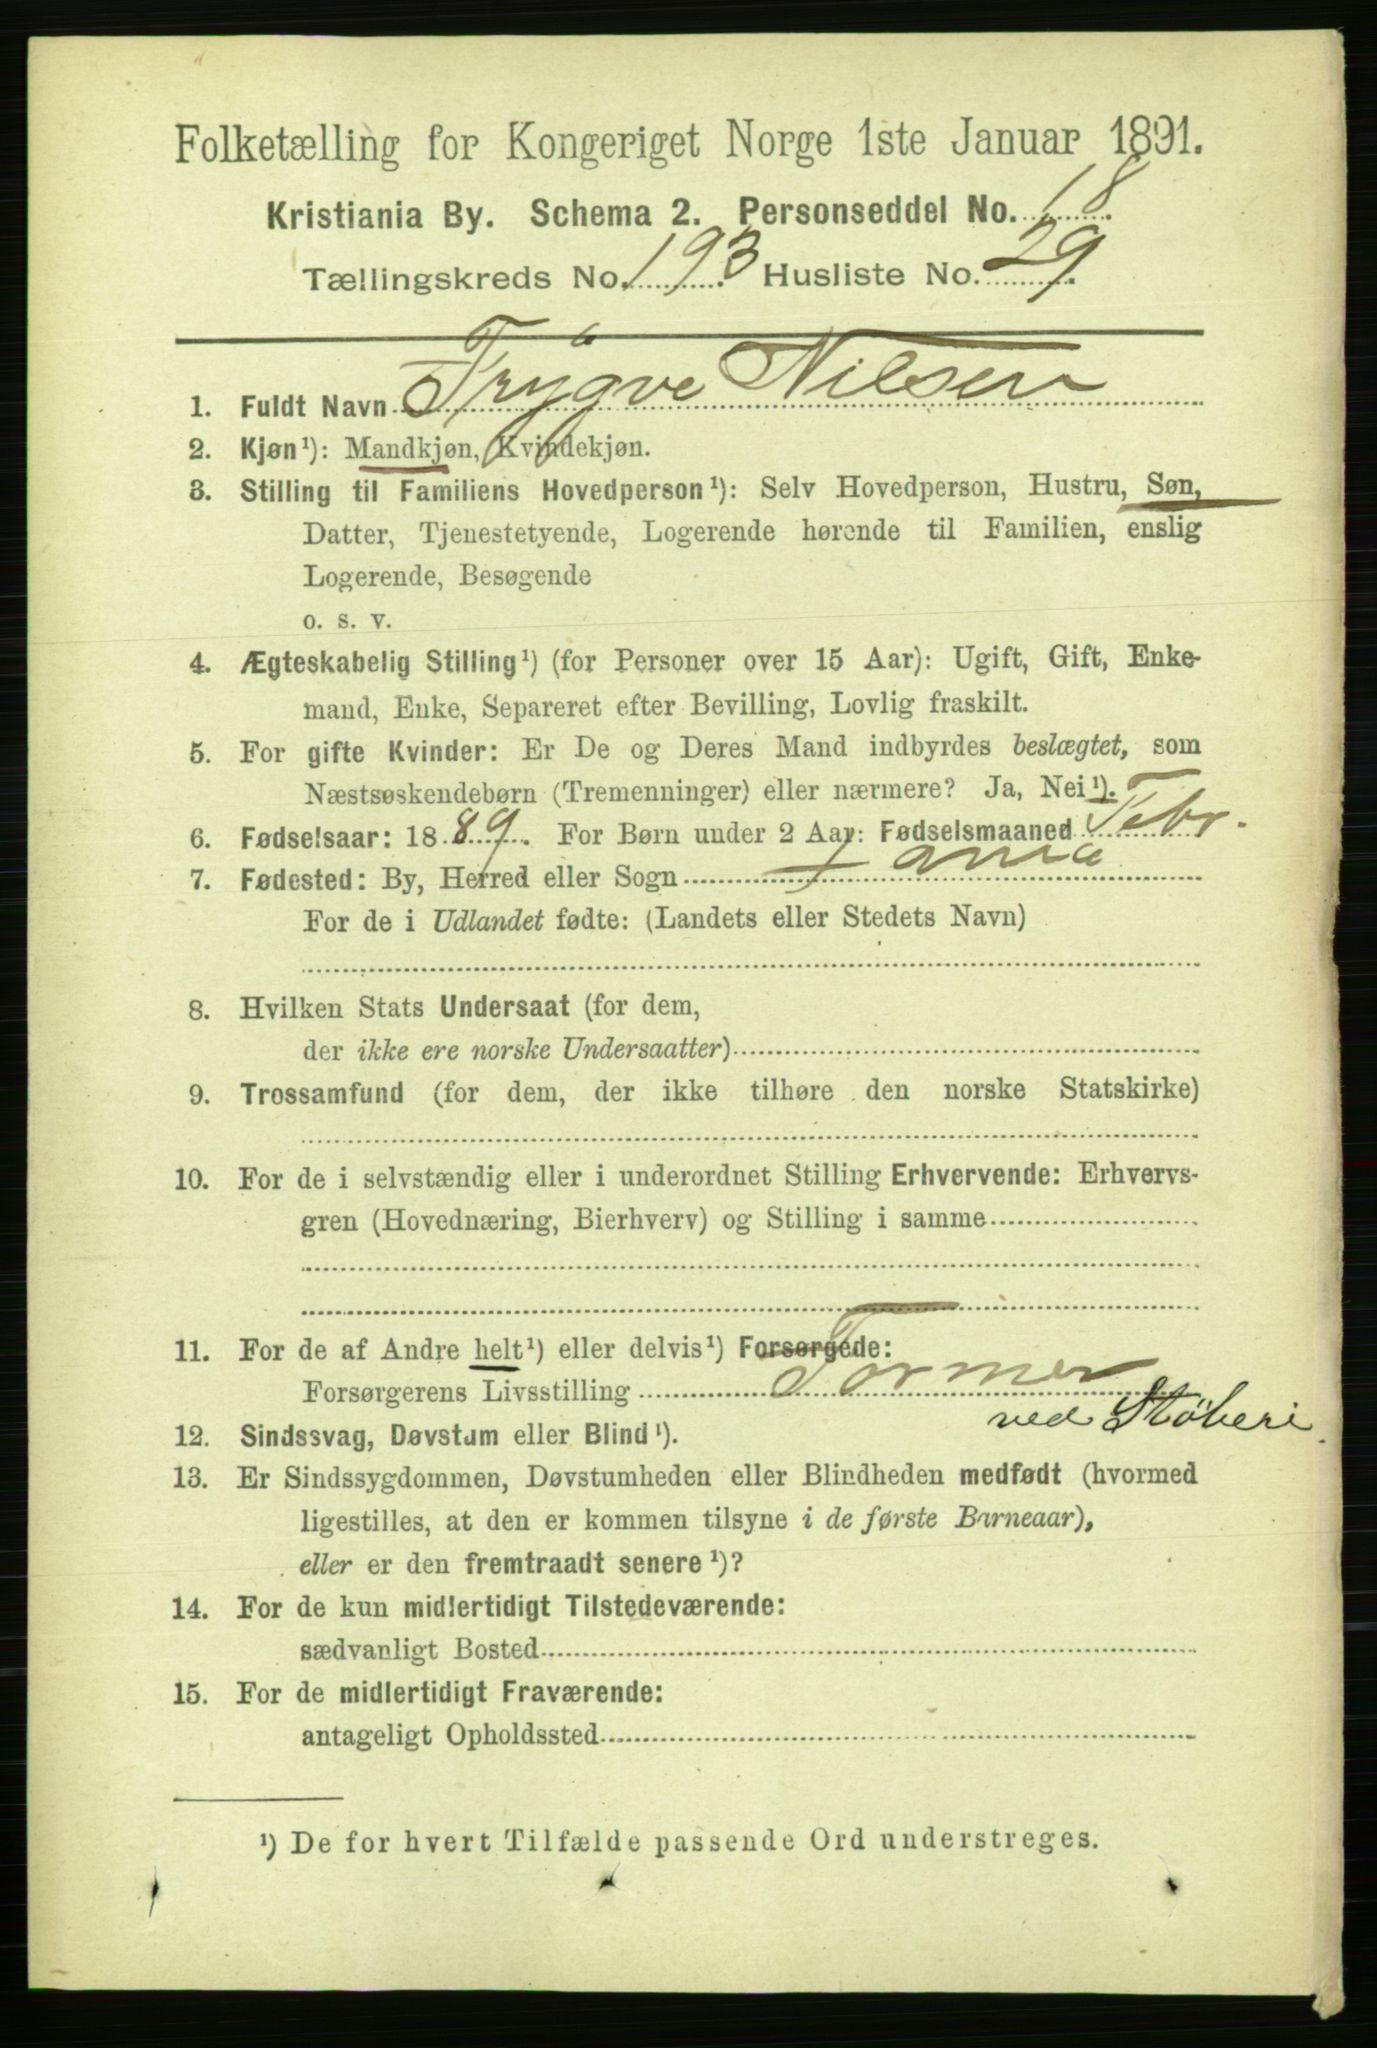 Folketælling for Kongeriget Norge 1ste Januar 1891.
Kristiania By. Schema 2. Personseddel No. 18.
Tællingskreds No. 193. Husliste No. 29.
1. Fuldt Navn Trygve Nilsen
2. Kjøn¹): Mandkjøn, Kvindekjøn.
3. Stilling til Familiens Hovedperson¹): Selv Hovedperson, Hustru, Søn,
Datter, Tjenestetyende, Logerende hørende til Familien, enslig
Logerende, Besøgende
o. s. v.
4. Ægteskabelig Stilling¹) (for Personer over 15 Aar): Ugift, Gift, Enke-
mand, Enke, Separeret efter Bevilling, Lovlig fraskilt.
5. For gifte Kvinder: Er De og Deres Mand indbyrdes beslægtet, som
Næstsøskendebørn (Tremenninger) eller nærmere? Ja, Nei¹).
6. Fødselsaar: 1889. For Børn under 2 Aar: Fødselsmaaned Febr.
7. Fødested: By, Herred eller Sogn
For de i Udlandet fødte: (Landets eller Stedets Navn)
8. Hvilken Stats Undersaat (for dem,
der ikke ere norske Undersaatter)
9. Trossamfund (for dem, der ikke tilhøre den norske Statskirke)
10. For de i selvstændig eller i underordnet Stilling Erhvervende: Erhvervs-
gren (Hovednæring, Bierhverv) og Stilling i samme
11. For de af Andre helt¹) eller delvis¹) Forsørgede:
Forsørgerens Livsstilling Former
ved Støberi
12. Sindssvag, Døvstum eller Blind¹).
13. Er Sindssygdommen, Døvstumheden eller Blindheden medfødt (hvormed
ligestilles, at den er kommen tilsyne i de første Barneaar),
eller er den fremtraadt senere¹)?
14. For de kun midlertidigt Tilstedeværende:
sædvanligt Bosted
15. For de midlertidigt Fraværende:
antageligt Opholdssted
¹) De for hvert Tilfælde passende Ord understreges.